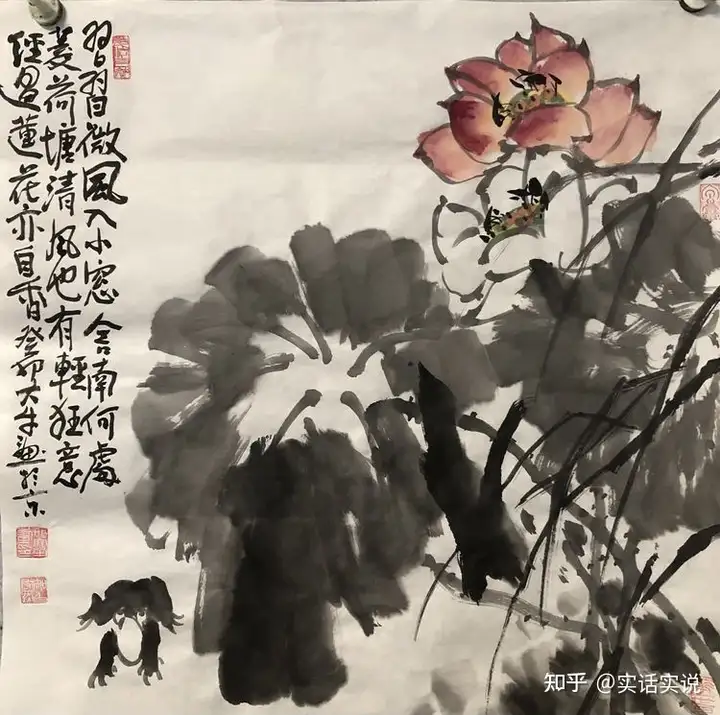 習習微風入小窓舍南何處
菱荷塘清風也有輕狂意
經過蓮花亦自香癸卯大牛畫於京
知乎 @实话实说